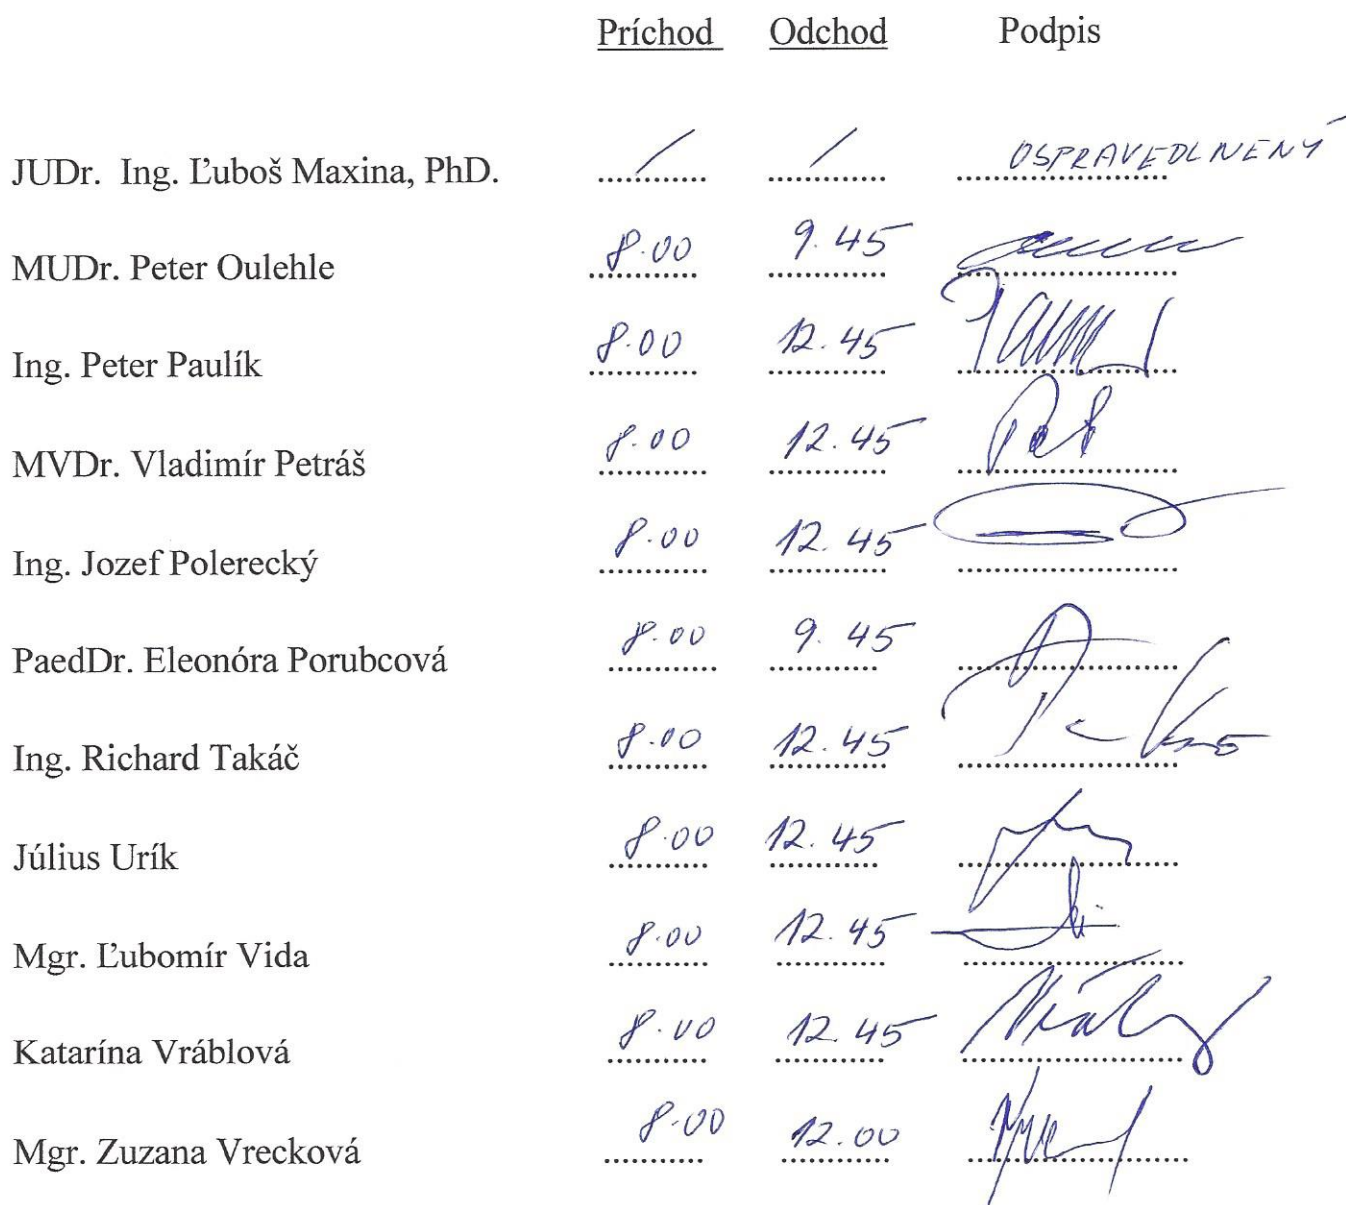 Príchod Odchod Podpis
JUDr. Ing. Ľuboš Maxina, PhD. / / OSPRAVEDLNENÝ
MUDr. Peter Oulehle 8.00 9.45
Ing. Peter Paulík 8.00 12.45
MVDr. Vladimír Petráš 8.00 12.45
Ing. Jozef Polerecký 8.00 12.45
PaedDr. Eleonóra Porubcová 8.00 9.45
Ing. Richard Takáč 8.00 12.45
Július Urík 8.00 12.45
Mgr. Ľubomír Vida 8.00 12.45
Katarína Vráblová 8.00 12.45
Mgr. Zuzana Vrecková 8.00 12.00